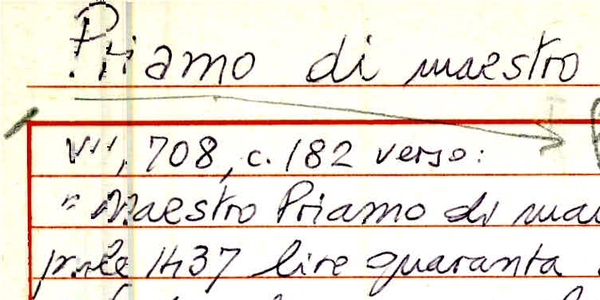 Priamo di maestro
VII, 708, c. 182 verso:
"Maestro Priamo di mae
1437 lire quaranta